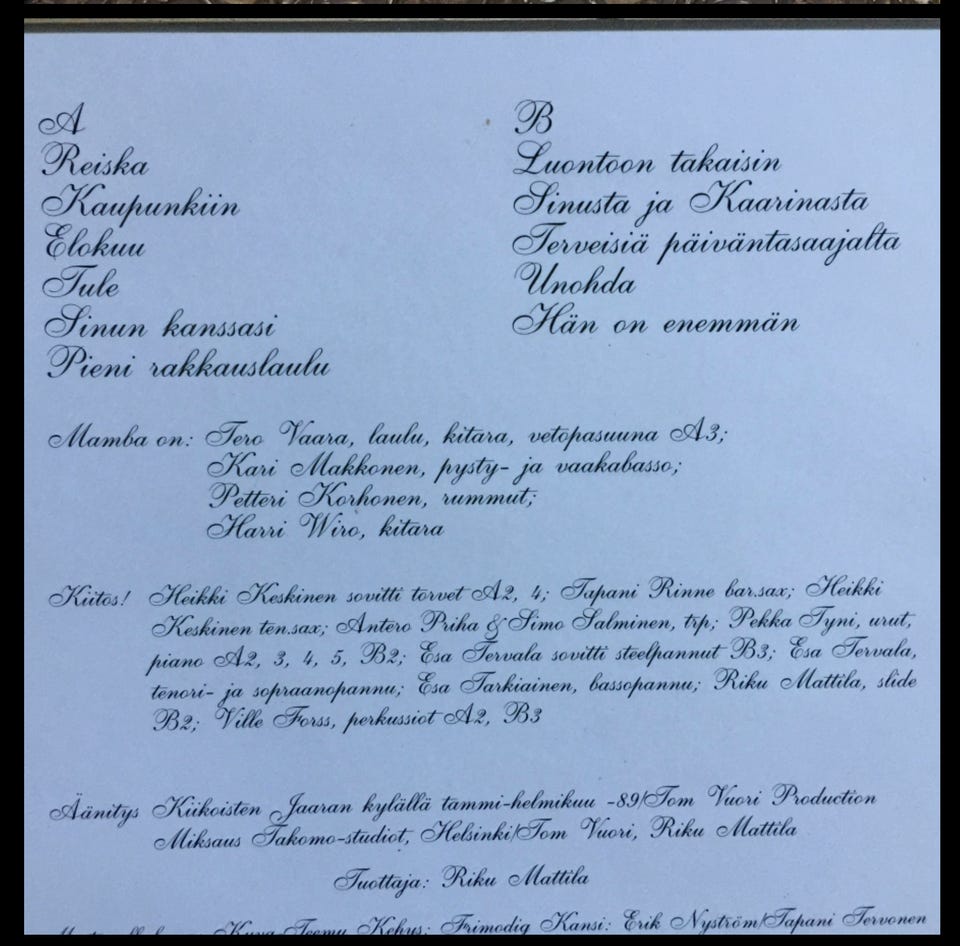 A
Reiska
Kaupunkiin
Elokuu
Tule
Sinun kanssasi
Pieni rakkauslaulu
B
Luontoon takaisin
Sinusta ja Kaarinasta
Terveisiä päiväntasaajalta
Unohda
Hän on enemmän
Mamba on: Tero Vaara, laulu, kitara, vetopasuuna A3;
Kari Makkonen, pysty- ja vaakabasso;
Petteri Korhonen, rummut;
Harri Wiro, kitara
Kiitos! Heikki Keskinen sovitti torvet A2, 4; Tapani Rinne bar.sax; Heikki
Keskinen ten.sax; Antero Priha & Simo Salminen, trp; Pekka Tyni, urut,
piano A2, 3, 4, 5, B2; Esa Tervala sovitti steelpannut B3; Esa Tervala,
tenori- ja sopraanopannu; Esa Tarkiainen, bassopannu; Riku Mattila, slide
B2; Ville Forss, perkussiot A2, B3
Äänitys Kiikoisten Jaaran kylällä tammi-helmikuu -89/Tom Vuori Production
Miksaus Takomo-studiot, Helsinki/Tom Vuori, Riku Mattila
Tuottaja: Riku Mattila
Kuva Teemu Kehys: Frimodig Kansi: Erik Nyström/Tapani Tervonen